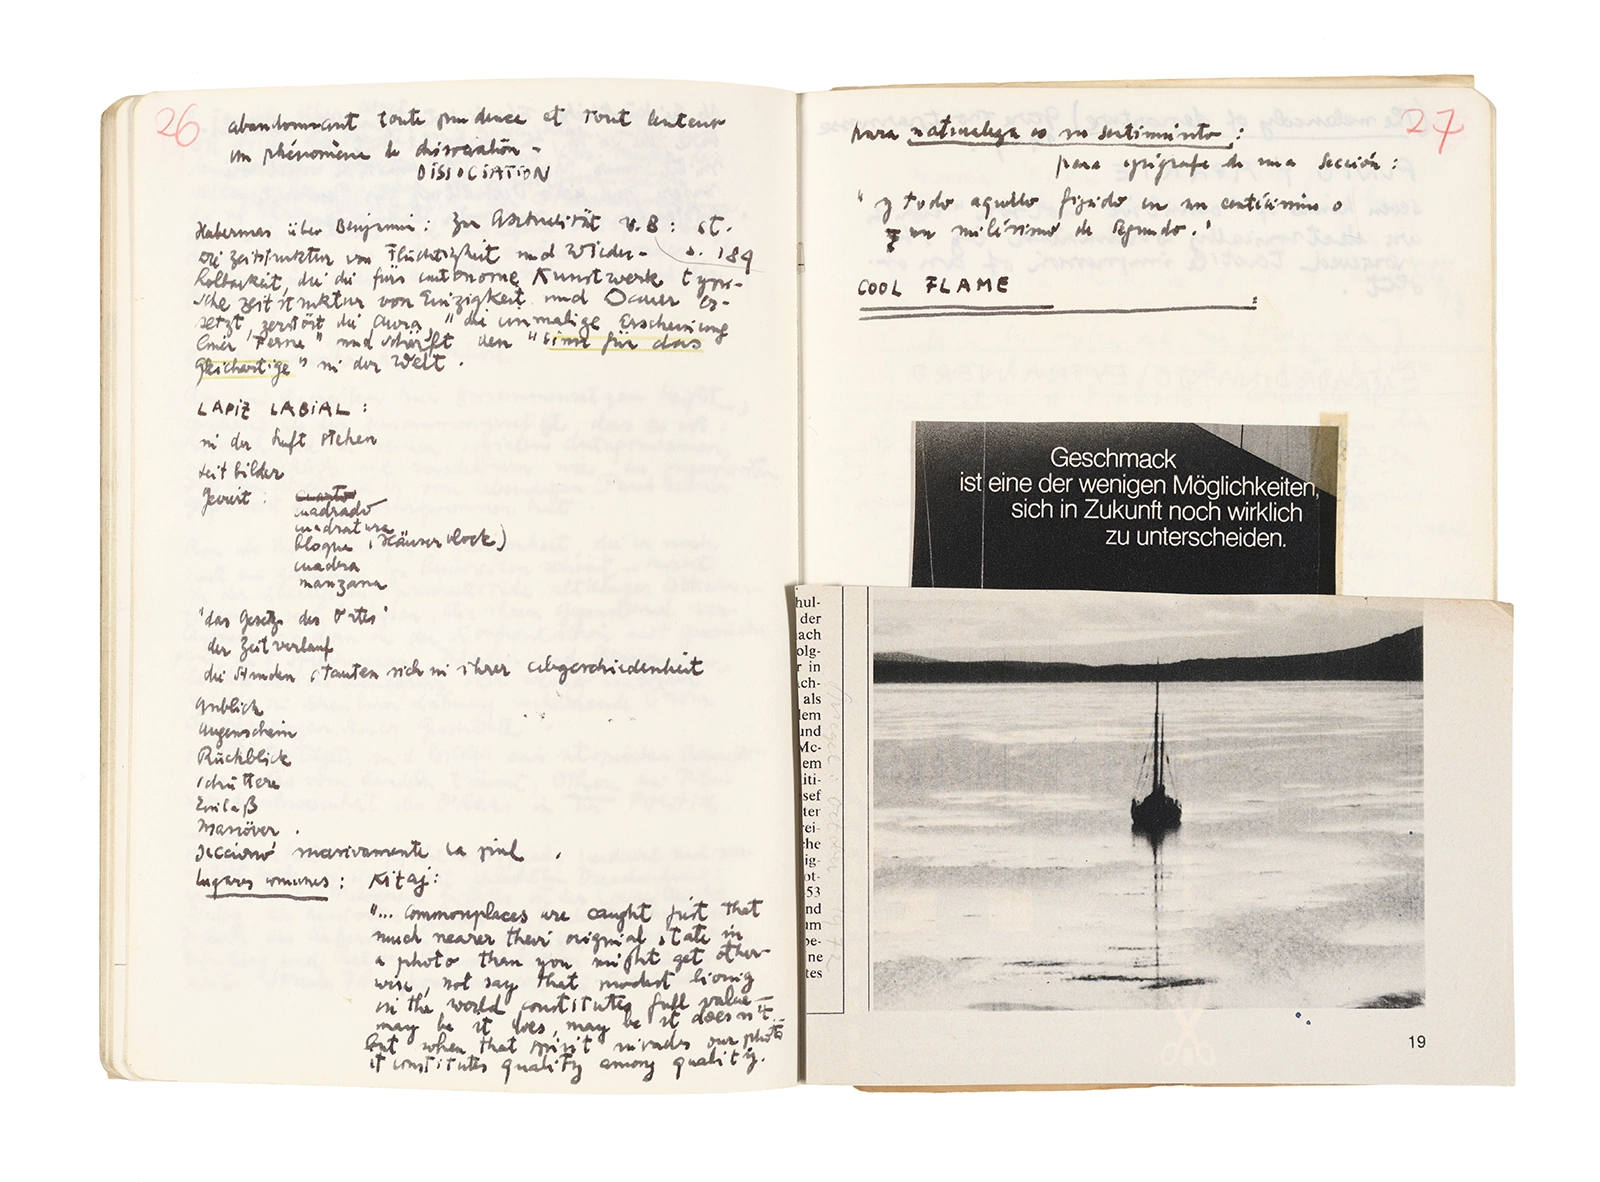 26
abandonnant toute prudence et tout
un phénomène de dissociation -
DISSOCIATION
Habermas über Benjamin: Zur Aktualität W.B: st.
s. 184
die Zeitstruktur von Flüchtigkeit und Wieder-
holbarkeit, die die fürs autonome Kunstwerk typi-
sche Zeitstruktur von Einzigkeit und Dauer er-
setzt, zerstört die Aura, "die einmalige Erscheinung
einer Ferne" und schärft den "Sinn für das
Gleichartige" in der Welt.
LAPIZ LABIAL:
in der Luft stehen
Zeitbilder
Geviert:
cuadrado
cuadratura
bloque (Häuserblock)
cuadra
manzana
'das Gesetz des Ortes'
der Zeitverlauf
die Stunden stauten sich in ihrer Abgeschiedenheit
Anblick
Augenschein
Rückblick
schüttere
Einlaß
Manöver.
seccionó masivamente la piel.
lugares comunes: Kitaj:
"... commonplaces are caught just that
much nearer their original state in
a photo than you might get other-
wise, not say that modest living
in the world constitutes full value -
may be it does, may be it doesn't...
but when that spirit invades our photo
it constitutes quality among quality.
27
para naturaleza es un sentimiento:
para epígrafe de una sección:
"y todo aquello fijado en un centésimo o
un milésimo de segundo."
COOL FLAME
Geschmack
ist eine der wenigen Möglichkeiten,
sich in Zukunft noch wirklich
zu unterscheiden.
hul-
der
ach
olg-
r in
ch-
als
dem
und
Mc-
em
iti-
sef
ter
rei-
che
ig-
ot-
53
nd
um
be-
ne
tes
19